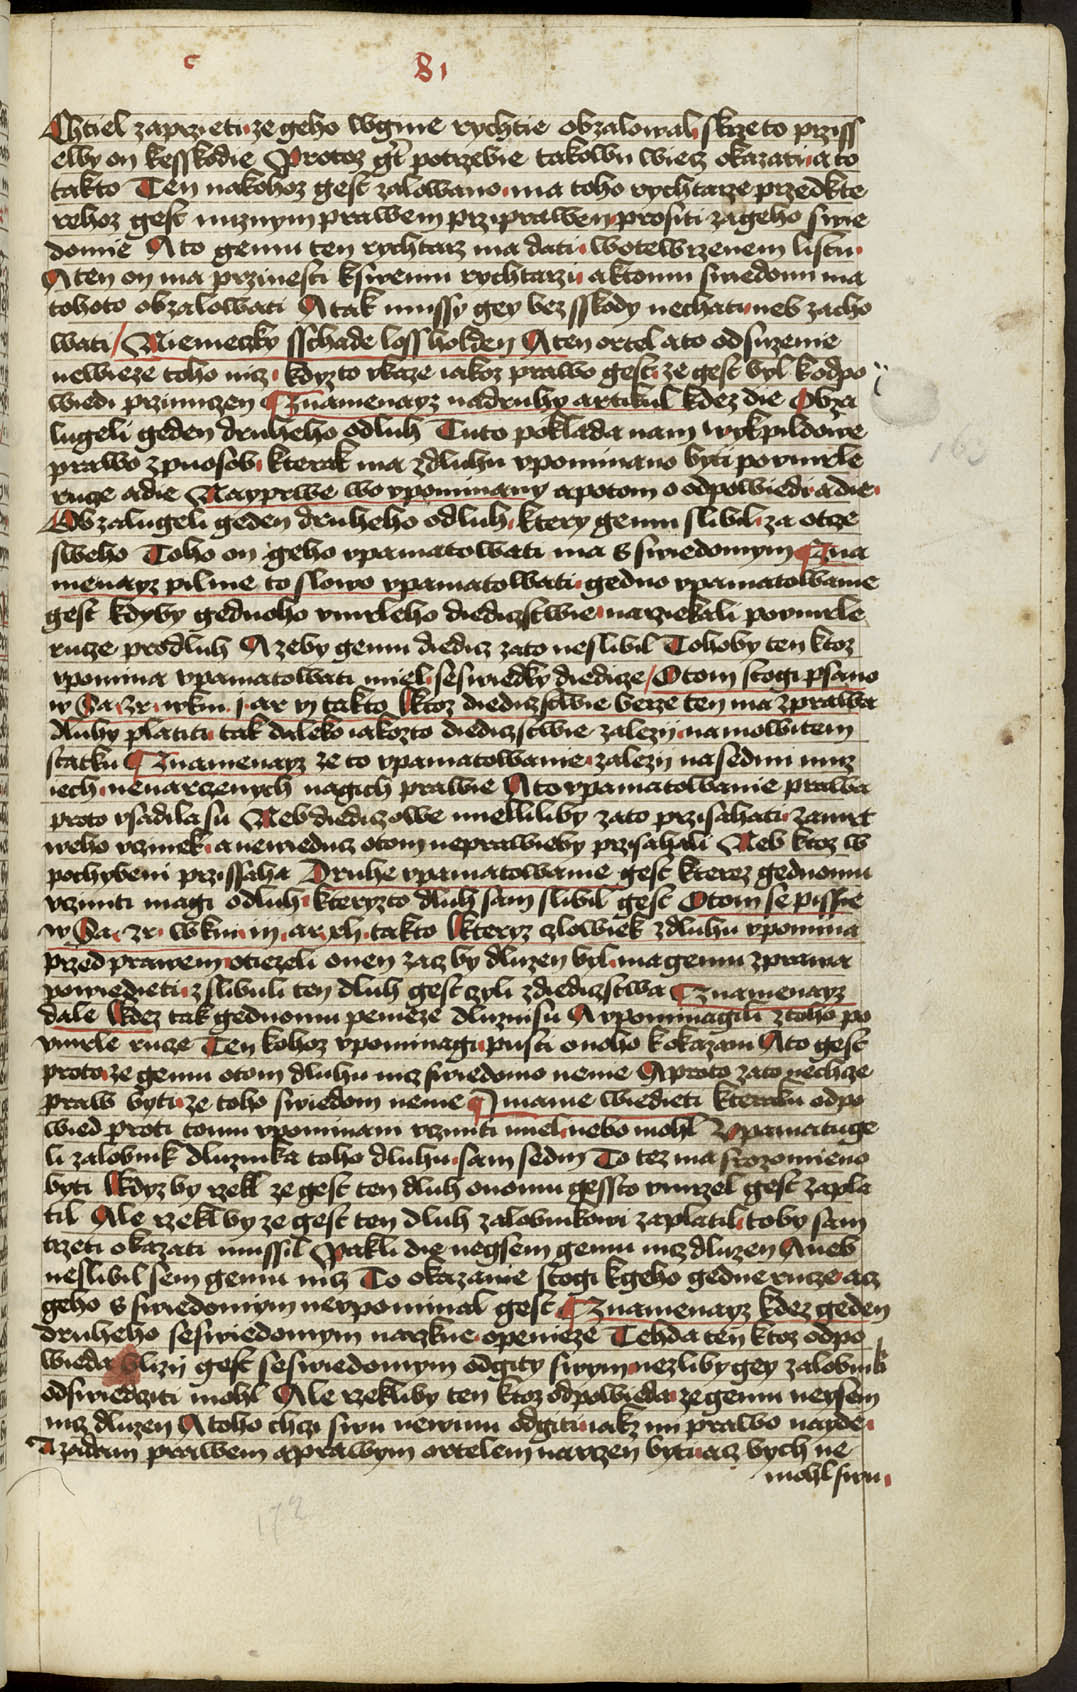 c 81
Chtiel zaprzieti ze geho wgine rychtie obzalowal skrze to przissl
elby on kesskodie Protoz gt potrzebie takowu wiecz okazati a to
takto Ten nakohoz gest zalowano ma toho rychtarze przedkte
rehoz gest miznym prawem przprawen prositi zageho swie
domie A to gemu ten rychtarz ma dati wotewrzenem listu
A ten on ma przinesti kswemu rychtarzu a ktomu swiedomi ma
tohoto obzalowati A tak mussy gey bez sskody nechati neb zacho
wati / Niemeczky sschade loss holden A ten ortel a to odsuzenie
newieze toho nicz kdyz to vkaze iakoz prawo gest ze gest byl kodpo
wiedi przinuczen Znamenayz nadruhy artikul kdez die Obza
lugeli geden druheho odluh Tuto poklada nam wykpildowe
prawo zpuosob kterak ma zdluhu vpominano byti po vmrle
rucze a die Nayprwe wo vpominany a potom o odpowiedi a die
Obzalugeli geden druheho odluh ktery gemu slibil za otcze
sweho Toho on geho vpamatowati ma s swiedomym Zna
menayz pilne to slowo vpamatowati gedno vpamatowanie
gest kdyby gednoho vmrleho diediczstwie narziekali po vmrle
rucze prodluh A zeby gemu diedicz zato neslibil Tohoby ten ktoz
vpomina vpamatowati miel seswiedky diedicze / Otom stogi psano
w Sa zr wkni j ar vj takto Ktoz diediczstwie berze ten ma zprawa
dluhy platiti tak daleko iakozto diediczstwie zalezij na mowitem
statku Znamenayz ze to vpamatowanie zalezij nasedmi muz
iech nenarczenych nagich prawie A to vpamatowanie prawa
proto vsadila su Neb diediczowe mielliliby zato przisahati zamrt
weho vczinek a newieducz otom neprawieby przisahali Neb ktoz w
pochybeni przissaha Druhe vpamatowanie gest kterez gednomu
vcziniti magi odluh kteryzto dluh sam slibil gest Otom se pissie
w Sa zr wkni iij ar xlj takto Kteryz czlowiek zdluhu vpomina
przed prawem otiezeli onen zacz by dluzen byl ma gemu zprawa
powiedieti z slibuli ten dluh gest czyli zdiediczstwa Znamenayz
dale Kdez tak gednomu penieze dluzni su A vpominagili ztoho po
vmrle rucze Ten kohoz vpominagi pusti onoho kokazani A to gest
proto ze gemu otom dluhu nicz swiedomo nenie A proto zato nechcze
praw byti ze toho swiedom nenie I mame wiedieti kteraku odpo
wied proti tomu vpominani vcziniti miel nebo mohl Vpamatuge
li zalobnik dluznika toho dluhu sam sedm To tez ma srozomieno
byti Kdyz by rzekl ze gest ten dluh onomu gessto vmrzel gest zapla
til Ale rzeklby ze gest ten dluh zalobnikowi zaplatil toby sam
trzeti okazati mussil Pakli die negsem gemu nicz dluzen Aneb
neslibil sem gemu nicz To okazanie stogi kgeho gedne rucze acz
geho s swiedomym nevpominal gest Znamenayz kdez geden
druheho seswiedomym narzkne openieze Tehda ten ktoz odpo
wieda blizij gest seswiedomym odgity swym nezliby gey zalobnik
odswiedcziti mohl Ale rzekliby ten ktoz odpowieda ze gemu neysem
nicz dluzen A toho chczi swu newinu odgiti iakz mi prawo nayde
A zadam prawem a prawym ortelem narzen byti acz bych ne
mohl swu
163
172